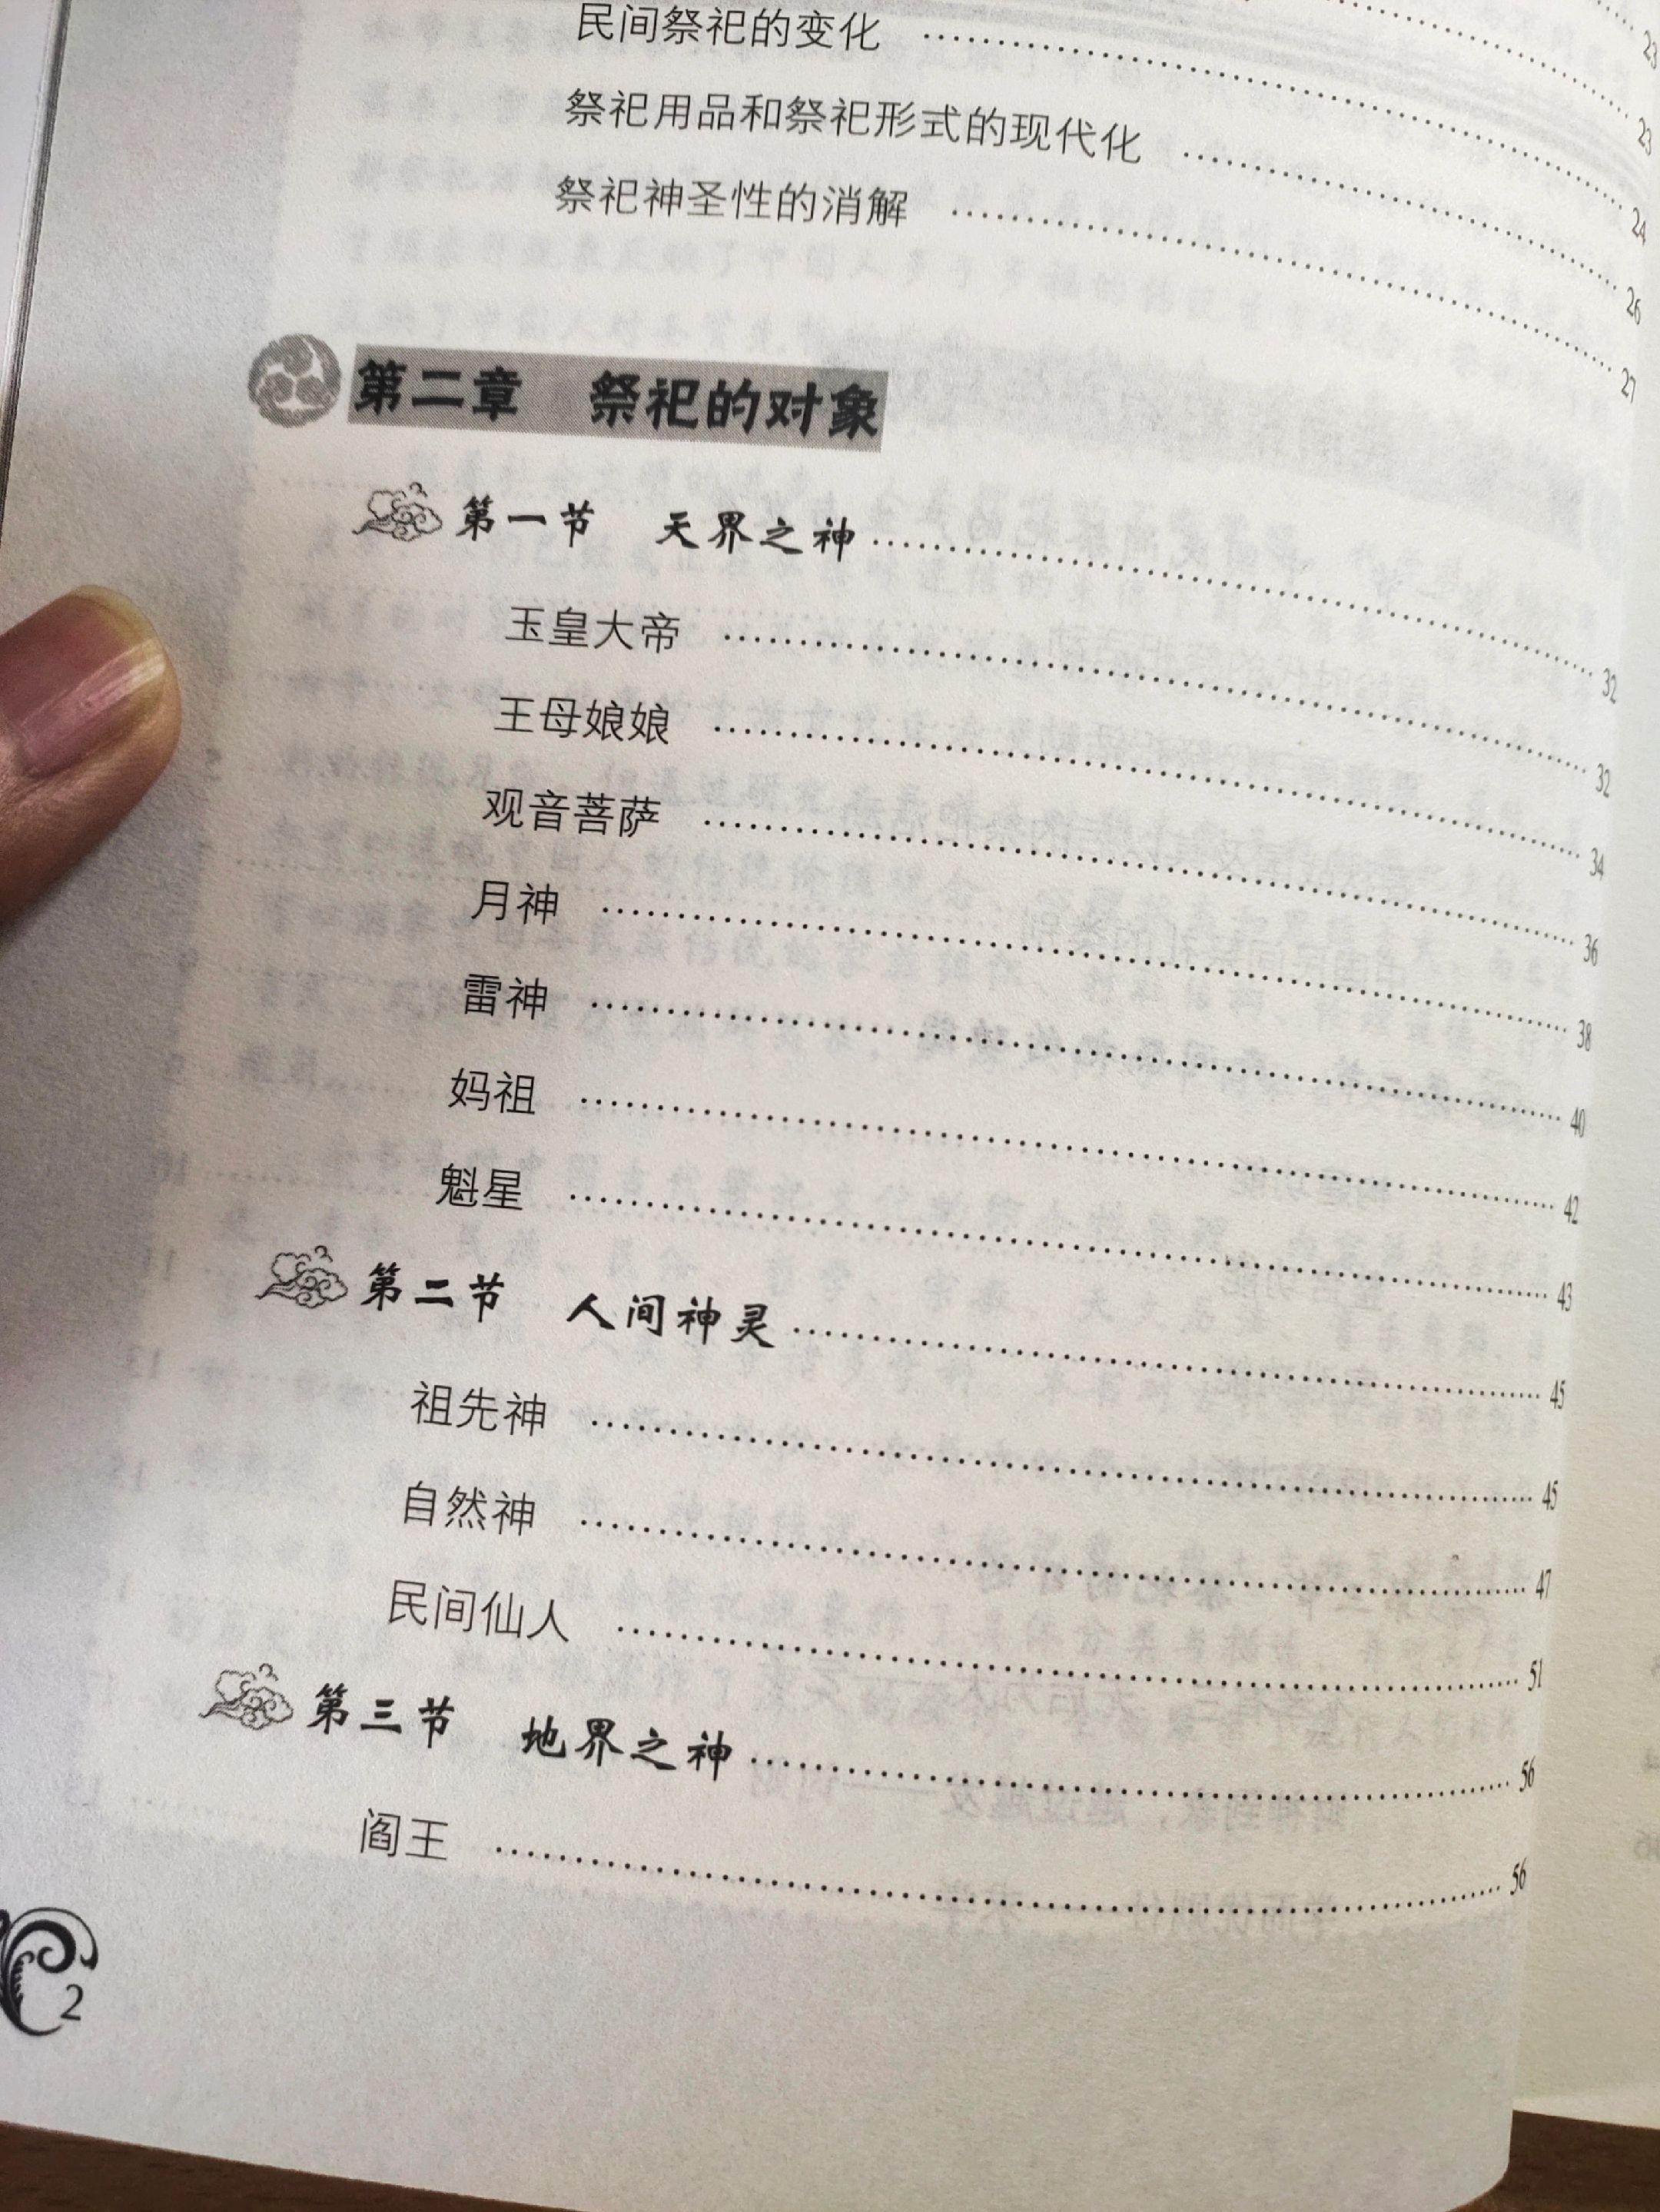 23
23
民间祭祀的变化 …… 24
祭祀用品和祭祀形式的现代化 …… 26
祭祀神圣性的消解 …… 27
第二章 祭祀的对象
第一节 天界之神 …… 32
玉皇大帝 …… 32
王母娘娘 …… 34
观音菩萨 …… 36
月神 …… 38
雷神 …… 40
妈祖 …… 42
魁星 …… 43
第二节 人间神灵 …… 45
祖先神 …… 45
自然神 …… 47
民间仙人 …… 51
第三节 地界之神 …… 56
阎王 …… 56
2